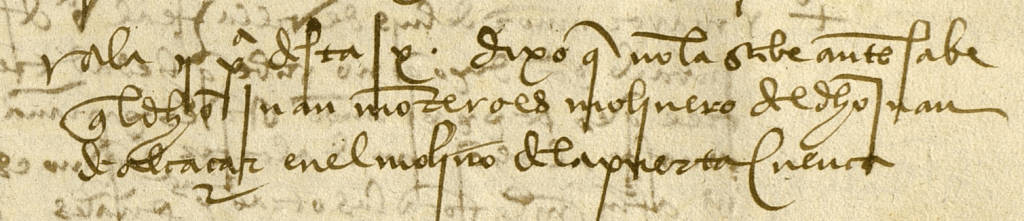 r a la ii pª desta x. dixo q no la sabe antes sabe
ql dho juan montero es molinero del dho juan
de alcaçar en el molino de la puerta cuenca